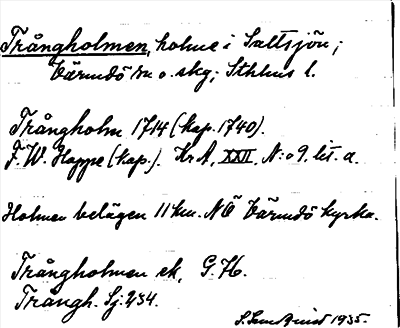 Trångholmen, holme i Saltsjön;
Värmdö sn o. skg; Sthlms l.
Trångholm 1714 (kap. 1740).
F. W. Hoppe (kap.). Kr A, XXII, N:o 9. lit. a.
Holmen belägen 11 km. NÖ Värmdö kyrka.
Trångholmen ek, G.K.
Trångh. Sj. 234.
1935.